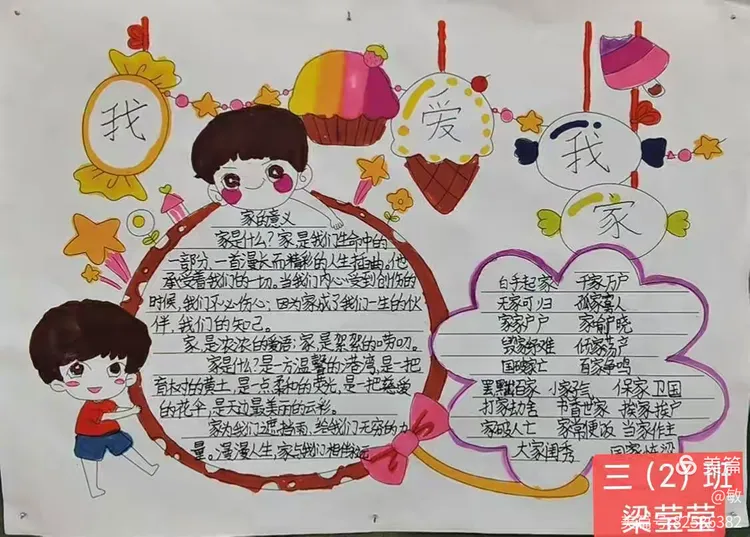 我
爱
我
家
家的意义
家是什么?家是我们生命中的
一部分,一首漫长而精彩的人生插曲。他
承受着我们的一切。当我们内心受到创伤的
时候,我们不必伤心;因为家成了我们一生的伙
伴,我们的知己。
家,是浓浓的爱语;家,是絮絮的劳叨。
家是什么?是一方温馨的港湾,是一把
首村的黄土,是一点柔和的荧光,是一把慈爱
的花伞,是天边最美丽的云彩。
家为我们遮挡雨,给我们无穷的力
量。漫漫人生,家与我们相伴
白手起家 千家万户
无家可归 孤家寡人
家家户户 家喻户晓
毁家纾难 倾家荡产
国破家亡 百家争鸣
罢黜百家 小家子气 保家卫国
打家劫舍 书香世家 挨家挨户
家破人亡 家常便饭 当家作主
大家闺秀
三(2)班
梁莹莹
美篇
@敏